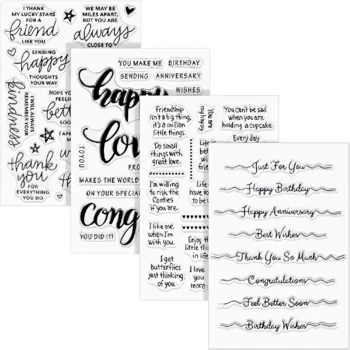 I THANK
MY LUCKY STARS
FOR A
friend
LIKE YOU
SENDING
happy
THOUGHTS
YOUR WAY
kindness
I WILL ALWAYS
REMEMBER YOUR
thank
you
FOR
EVERYTHING
YOU DO
WE MAY BE
MILES APART,
BUT YOU ARE
always
CLOSE TO
HOPE YOU
FEELING
better
YOU MAKE MY
BIRTHDAY
SENDING
ANNIVERSARY
WISHES
happy
love
TO YOU
MAKES THE WORLD
ON YOUR SPECIAL
YOU DID IT!
Friendship
isn't a big thing,
it's a million
little things.
Do small
things with
great love.
I'm willing
to risk the
Cooties
if you are.
I like me
when I'm
with you.
I get
butterflies
just thinking
of you.
You can't be sad
when you are
holding a cupcake.
Every day
Just For You
Happy Birthday
Happy Anniversary
Best Wishes
Thank You So Much
Congratulations
Feel Better Soon
Birthday Wishes